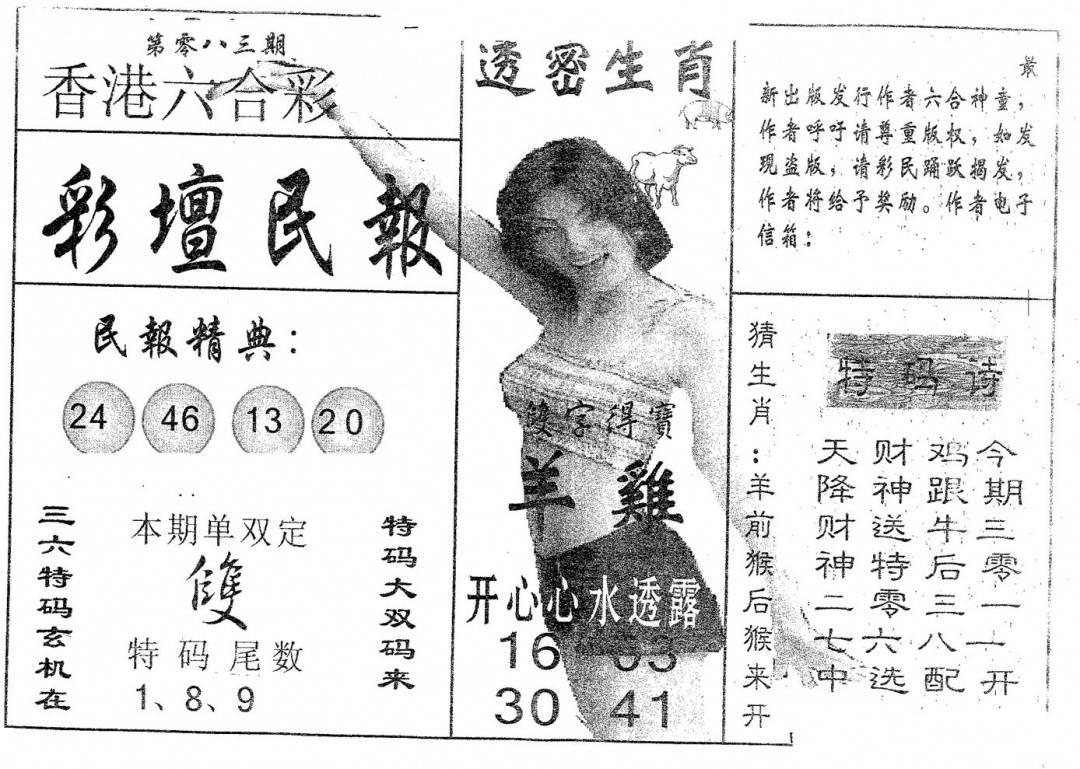 第零八三期
香港六合彩
彩壇民報
民報精典：
24 46 13 20
三六特码玄机在
本期单双定
雙
特码尾数
1、8、9
特码大双码来
透密生肖
雙字得寶
羊 雞
开心心水透露
16 03
30 41
最
新出版发行作者六合神童，
作者呼吁请尊重版权，如发
现盗版，请彩民踊跃揭发，
作者将给予奖励。作者电子
信箱：
猜生肖：羊前猴后猴来开
特码诗
今期三零一一开
鸡跟牛后三八配
财神送特零六选
天降财神二七中